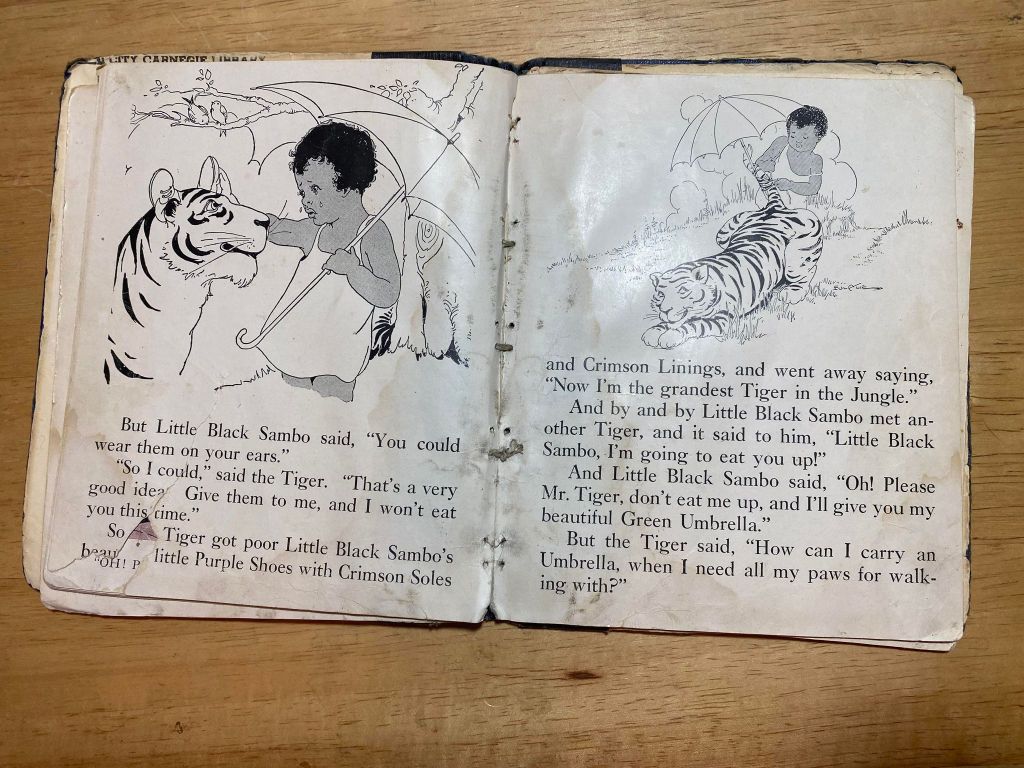 CITY CARNEGIE LIBRARY
But Little Black Sambo said, “You could
wear them on your ears.”
“So I could,” said the Tiger. “That’s a very
good idea Give them to me, and I won’t eat
you this time.”
So Tiger got poor Little Black Sambo’s
beau little Purple Shoes with Crimson Soles
“OH! P
and Crimson Linings, and went away saying,
“Now I’m the grandest Tiger in the Jungle.”
And by and by Little Black Sambo met an-
other Tiger, and it said to him, “Little Black
Sambo, I’m going to eat you up!”
And Little Black Sambo said, “Oh! Please
Mr. Tiger, don’t eat me up, and I’ll give you my
beautiful Green Umbrella.”
But the Tiger said, “How can I carry an
Umbrella, when I need all my paws for walk-
ing with?”